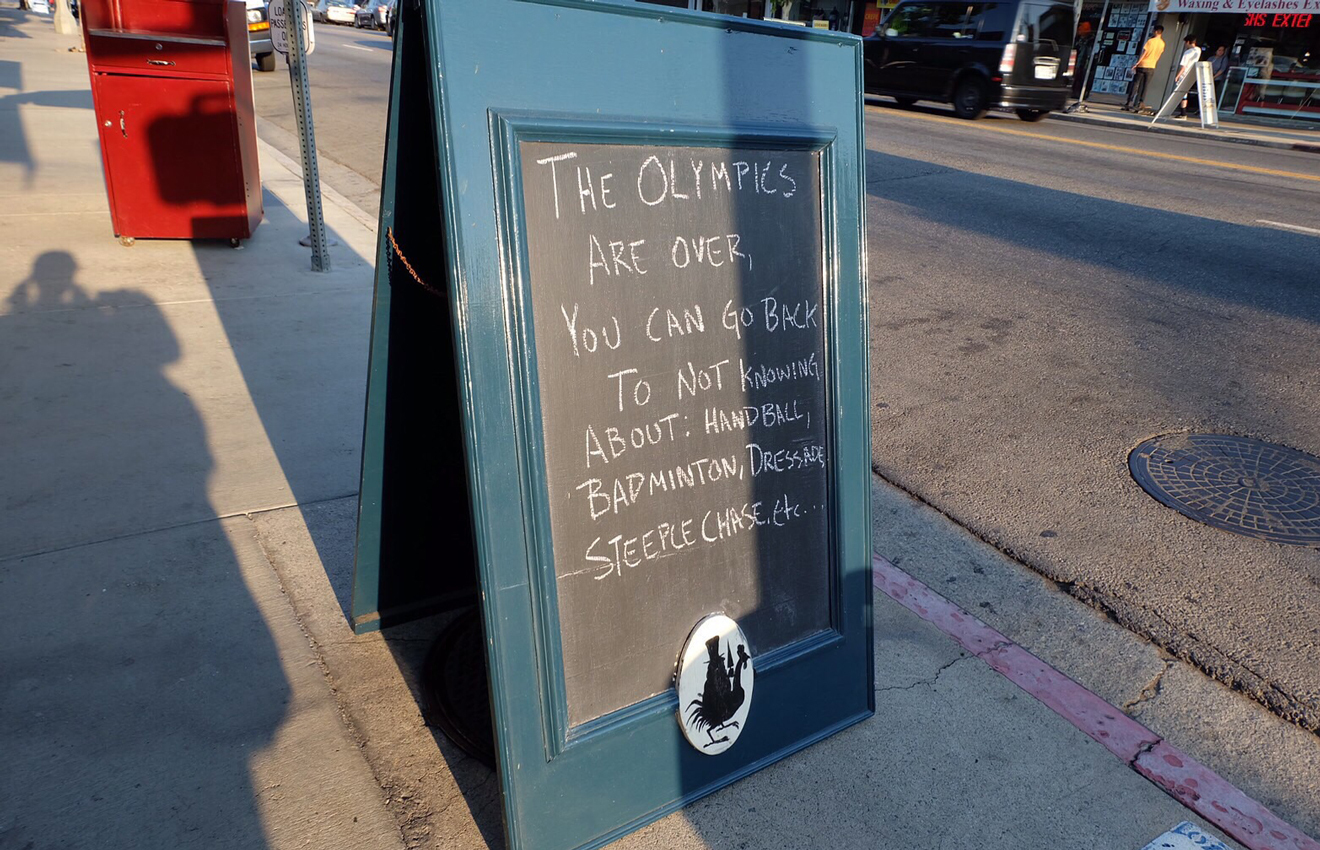 THE OLYMPICS
ARE OVER,
YOU CAN GO BACK
TO NOT KNOWING
ABOUT: HANDBALL,
BADMINTON, DRESSADE,
STEEPLE CHASE, etc...
Waxing & Eyelashes Ex
SHS EXTEN
PASSE